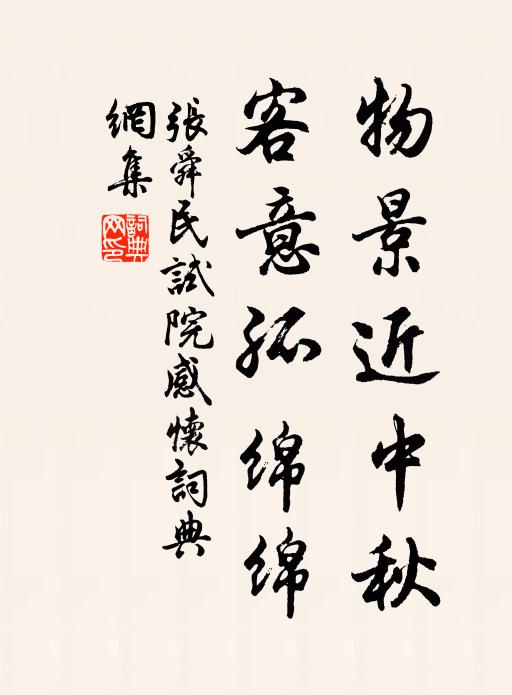 物景近中秋
客意孤绵绵
張舜民試院感懷詞典
網集
詞典
网印